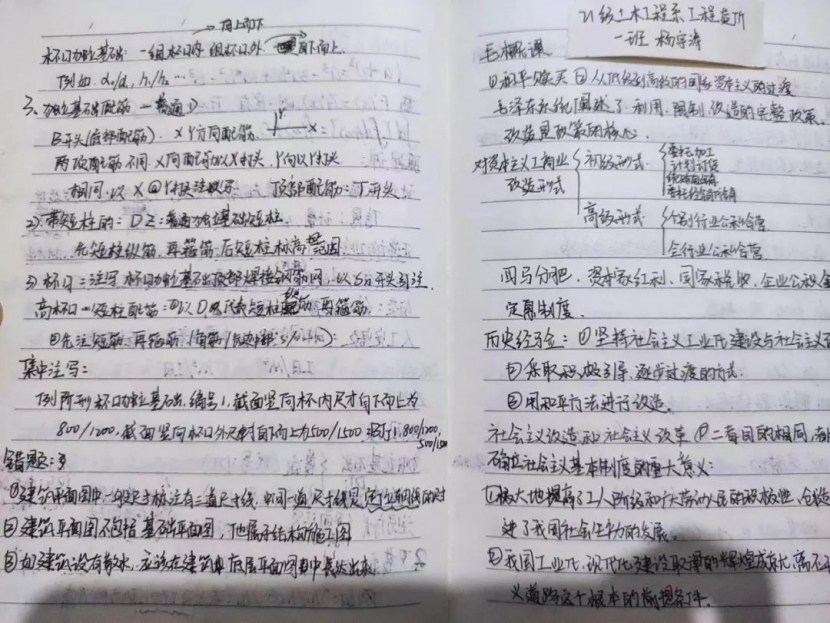 自上而下
杯口独立基础:一组杯口内 组杯口外 自下而上.
例如 a₀/a₁, h₁/h₀ …
3、独立基础配筋 一普通①
B开头(底部配筋). X Y方向配筋
两项配筋不同 X向配筋以X打头 Y向以Y打头
相同:以 X&Y打头注写 顶部配筋:T开头
2) 带短柱的:DZ:普通独立基础短柱.
先短柱纵筋,再箍筋,后短柱标高范围.
3) 杯口:注写杯口独立基础顶部焊接钢筋网,以Sn开头引注.
高杯口一短柱配筋:①以O代表短柱配筋 再箍筋
②先注短筋,再箍筋
集中注写:
例 所形杯口独立基础,编号1,截面竖向杯内尺寸自下而上为
800/1200,截面竖向杯口外尺寸自下而上为500/1500 800/1200,
500/1500
错题:
①建筑平面图中一般尺寸标注有三道尺寸线,中间一道尺寸线是定位轴线间的尺寸
②建筑平面图不包括基础平面图,他属于结构施工图
③如建筑设有散水,应该在建筑 底层平面图中表达出来.
21级土木工程系工程造价
一班 杨宇涛
毛概课
①和平赎买 ②从低级到高级的国家资本主义的过渡
毛泽东系统阐述了 利用、限制、改造的完整政策.
改造是政策的核心.
对资本主义工商业 初级形式 委托加工
计划订货
改造形式 统购包销
委托经销代销
高级形式 个别行业公私合营
全行业公私合营
四马分肥. 资本家红利、国家税收、企业公积金
定息制度.
历史经验:①坚持社会主义工业化建设与社会主义改
②采取积极引导、逐步过渡的方式
③用和平方法进行改造.
社会主义改造和社会主义改革 ①二者目的相同,都
确立社会主义基本制度的重大意义:
①极大地提高了工人阶级和广大劳动人民的积极性、创造
进了我国社会生产力的发展.
②我国工业化、现代化建设取得的辉煌成就,离不开
义道路这个根本的前提条件.